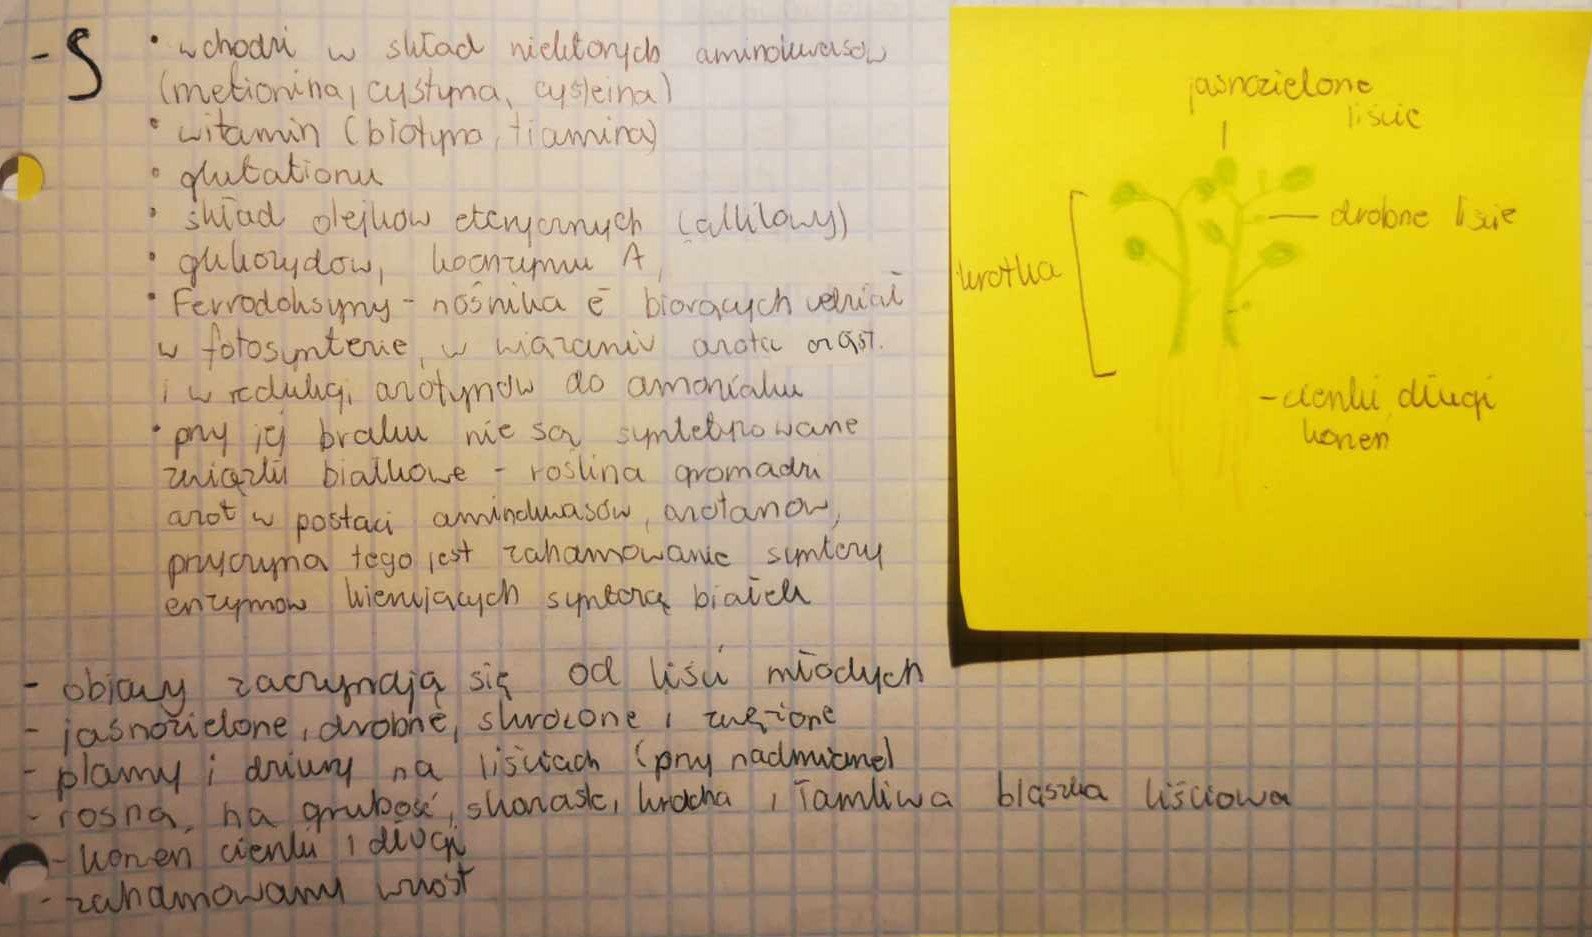 - S
• wchodzi w skład niektórych aminokwasów
(metionina, cystyna, cysteina)
• witamin (biotyna, tiamina)
• glutationu
• skład olejków eterycznych (allilowy)
• glikozydów, koenzymu A,
• Ferrodoksyny - nośnika ē biorących udział
w fotosyntezie, w wiązaniu azotu cząst.
i w redukcji azotynów do amoniaku
• przy jej braku nie są syntetyzowane
związki białkowe - roślina gromadzi
azot w postaci aminokwasów, azotanów,
przyczyną tego jest zahamowanie syntezy
enzymów kierujących syntezą białek
- objawy zaczynają się od liści młodych
- jasnozielone, drobne, skrócone i zwężone
- plamy i dziury na liściach (przy nadmiarze)
- rosną na grubość, skorast, krucha i łamliwa blaszka liściowa
- korzeń cienki i długi
- zahamowany wzrost
jasnozielone
liście
drobne liście
krótka
- cienki, długi
korzeń